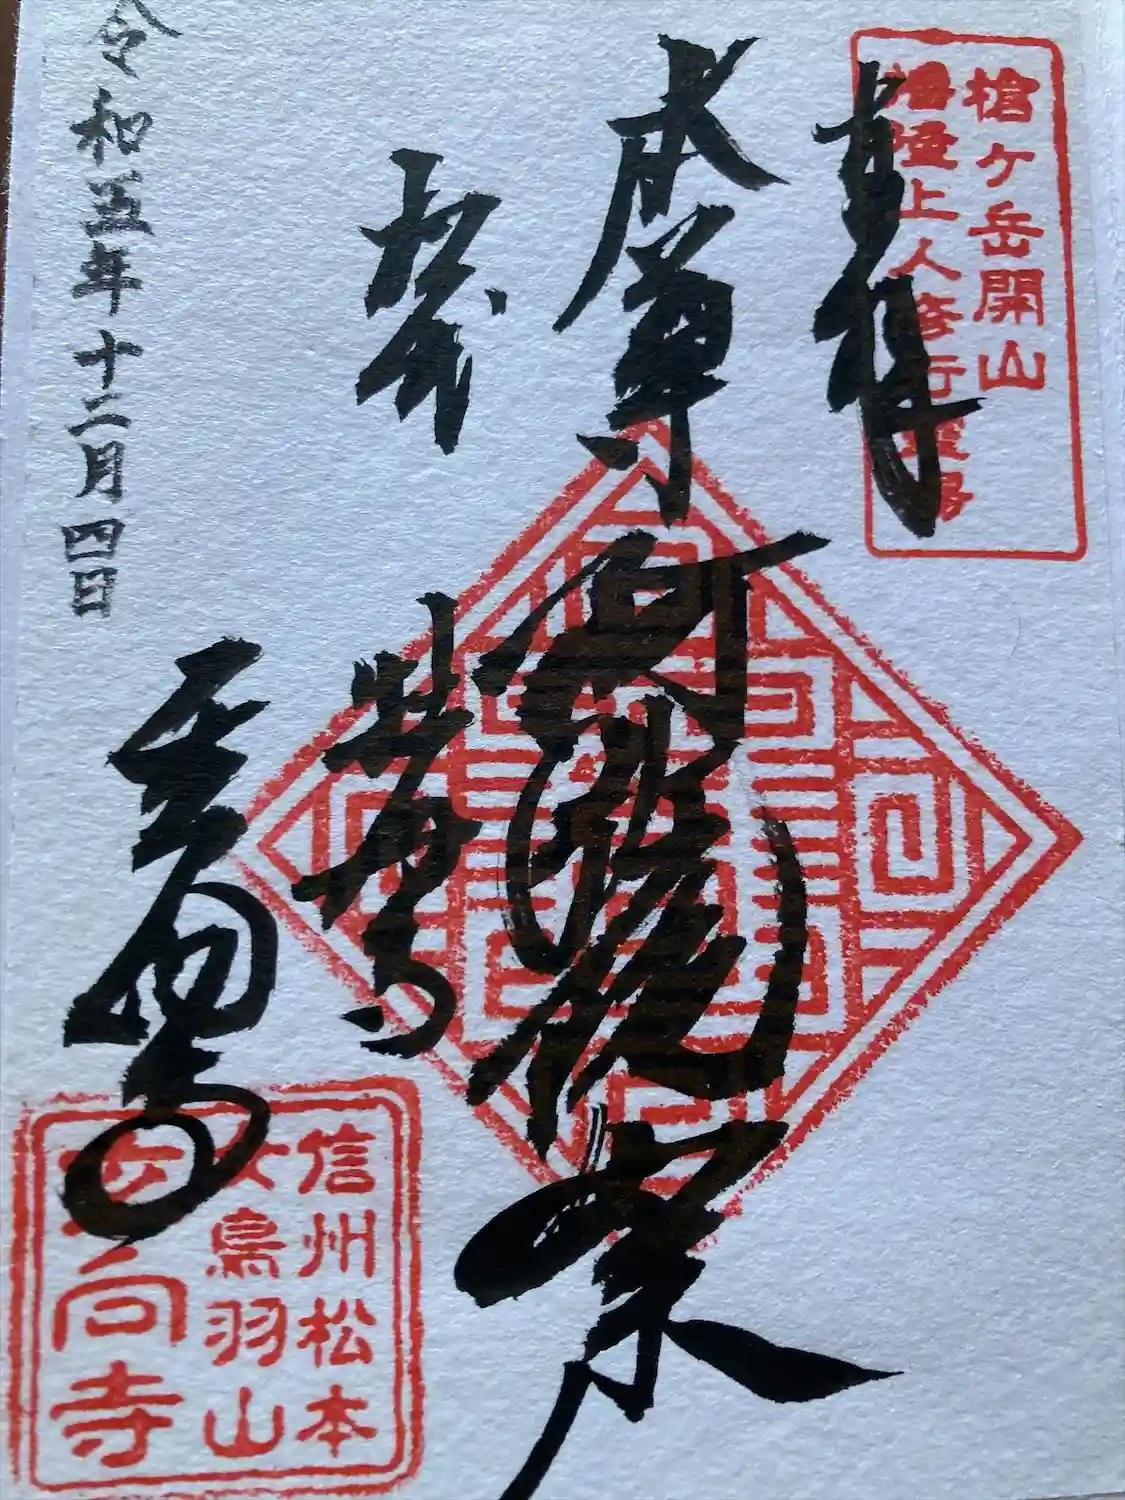 槍ヶ岳開山
播隆上人修行霊場
奉拝
本尊阿弥陀如来
令和五年十二月四日
玄向寺
信州松本
女鳥羽山
玄向寺